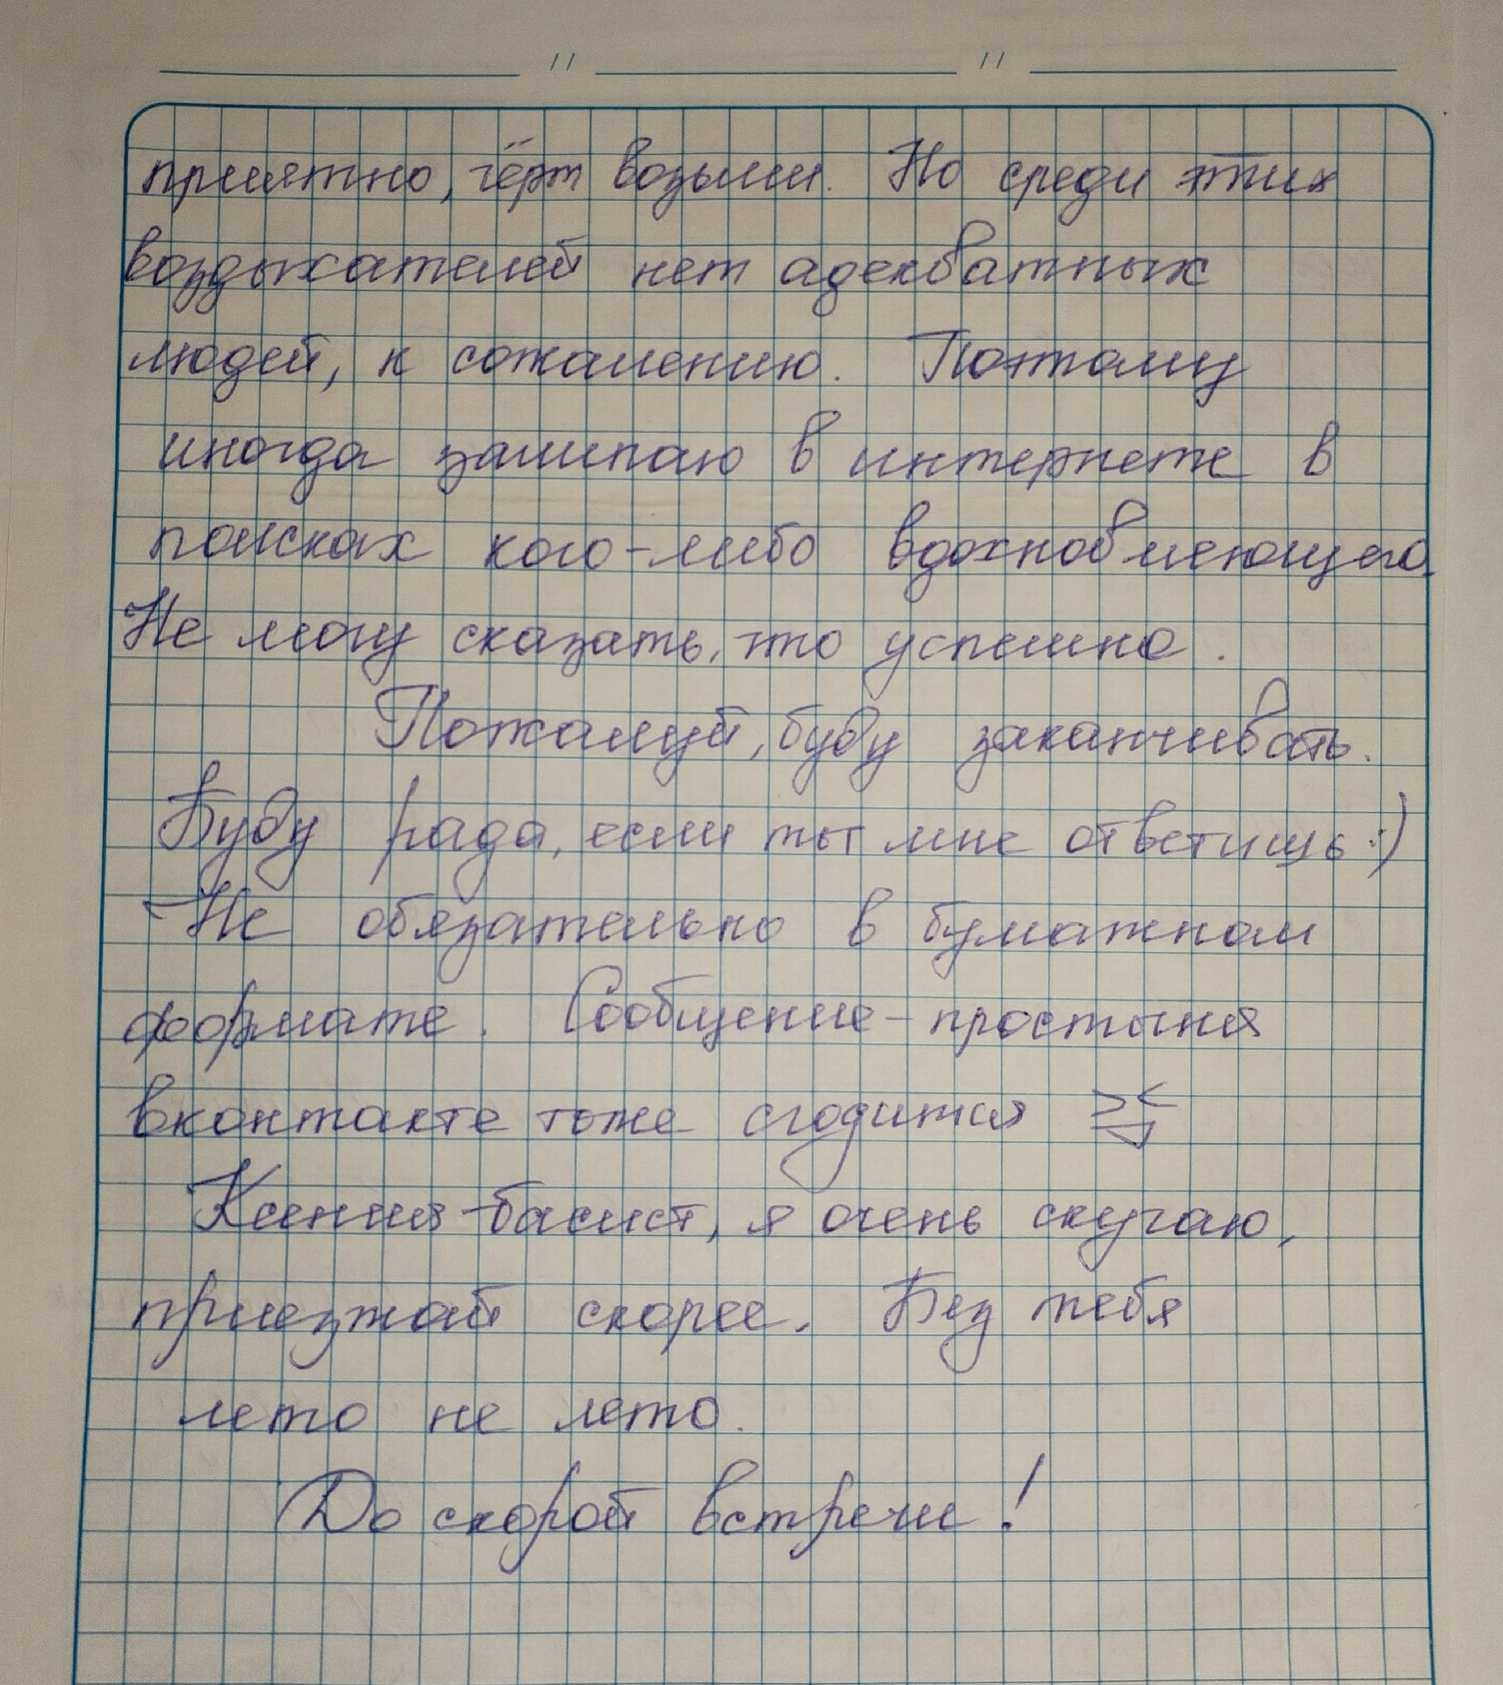 приятно, чёрт возьми. Но среди этих
воздыхателей нет адекватных
людей, к сожалению. Поэтому
иногда залипаю в интернете в
поисках кого-либо вдохновляющего.
Не могу сказать, что успешно.
Пожалуй, буду заканчивать.
Буду рада, если ты мне ответишь :)
Не обязательно в бумажном
формате. Сообщение-простыня
вконтакте тоже сгодится
Ксения-басист, я очень скучаю,
приезжай скорее. Без тебя
лето не лето.
До скорой встречи!